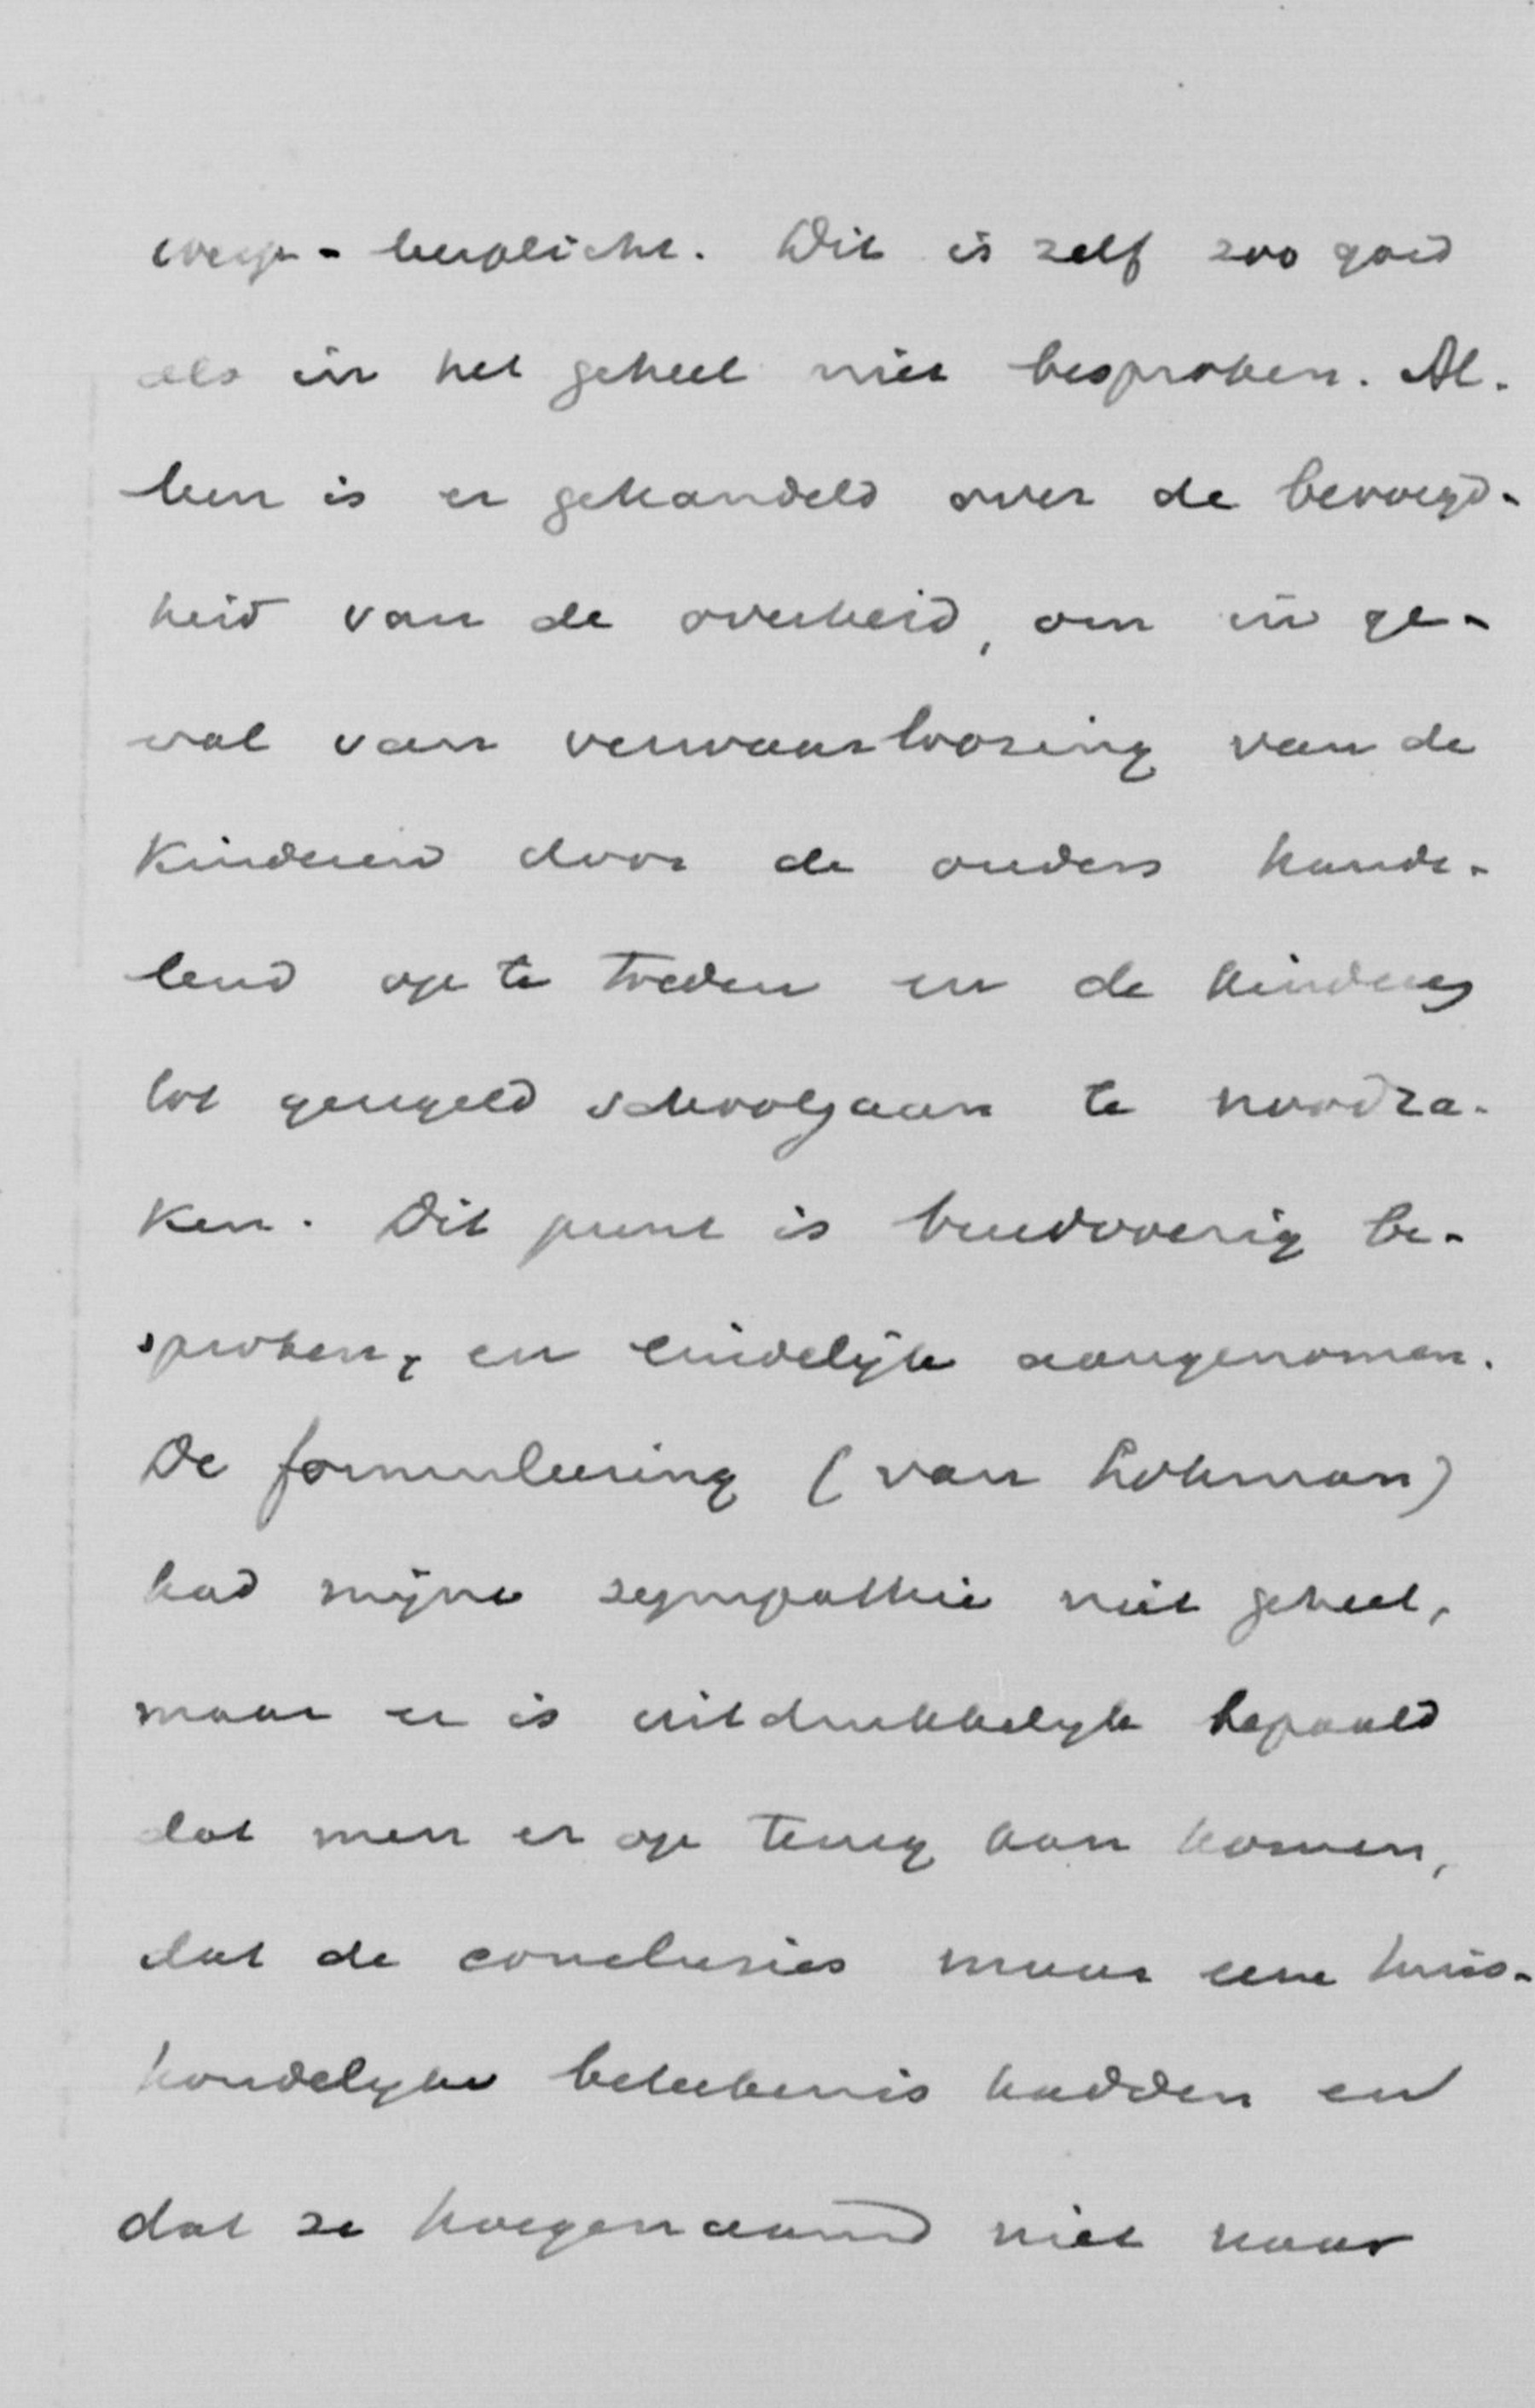 weys-leerplicht. Dit is zelf zoo goed
als in het geheel niet besproken. Al-
leen is er gehandeld over de bevoegd-
heid van de overheid, om in ge-
val van verwaarloozing van de
kinderen door de ouders hande-
lend op te treden en de kinderen
tot geregeld schoolgaan te noodza-
ken. Dit punt is breedvoerig be-
sproken, en eindelijk aangenomen.
De formuleering (van Lohman)
had mijne sympathie niet geheel,
maar er is uitdrukkelijk bepaald
dat men er op terug kan komen,
dat de conclusies maar eene huis-
houdelijke beteekenis hadden en
dat ze hoegenaamd niet naar